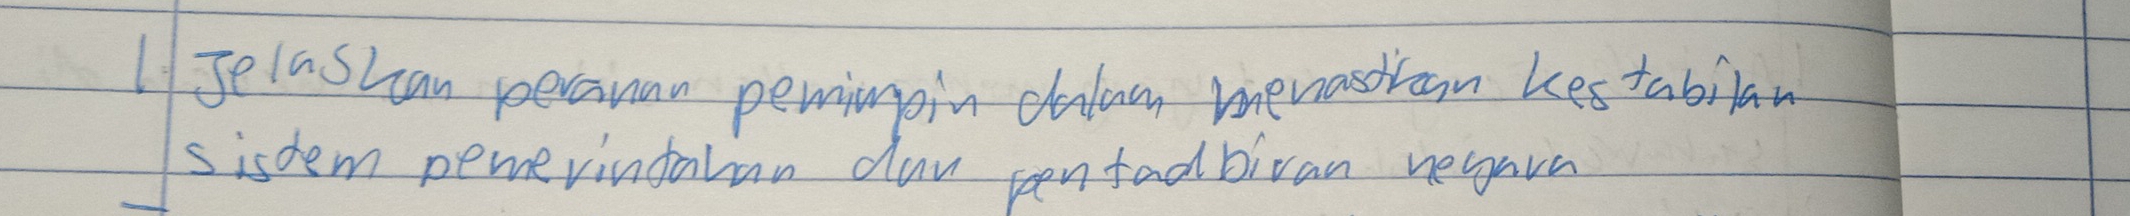 1 Jelaskan peranan pemimpin dalam memastikan kestabilan
sistem pemerintahan dan pentadbiran negara